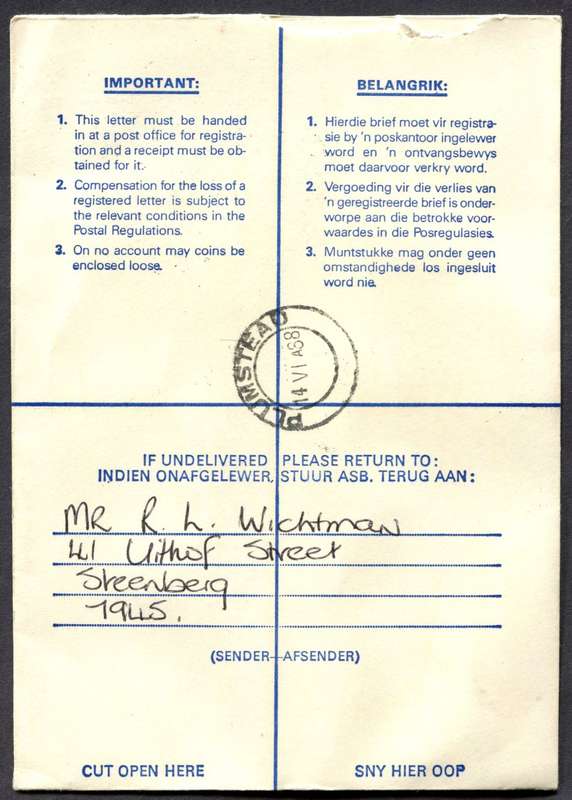 IMPORTANT:
1. This letter must be handed
in at a post office for registra-
tion and a receipt must be ob-
tained for it.
2. Compensation for the loss of a
registered letter is subject to
the relevant conditions in the
Postal Regulations.
3. On no account may coins be
enclosed loose.
BELANGRIK:
1. Hierdie brief moet vir registra-
sie by 'n poskantoor ingelewer
word en 'n ontvangsbewys
moet daarvoor verkry word.
2. Vergoeding vir die verlies van
'n geregistreerde brief is onder-
worpe aan die betrokke voor-
waardes in die Posregulasies.
3. Muntstukke mag onder geen
omstandighede los ingesluit
word nie.
PLUMSTEAD
14 VI
IF UNDELIVERED PLEASE RETURN TO:
INDIEN ONAFGELEWER, STUUR ASB. TERUG AAN:
MR R. L. Wichtman
41 Uithof Street
Steenberg
7945.
(SENDER–AFSENDER)
CUT OPEN HERE
SNY HIER OOP